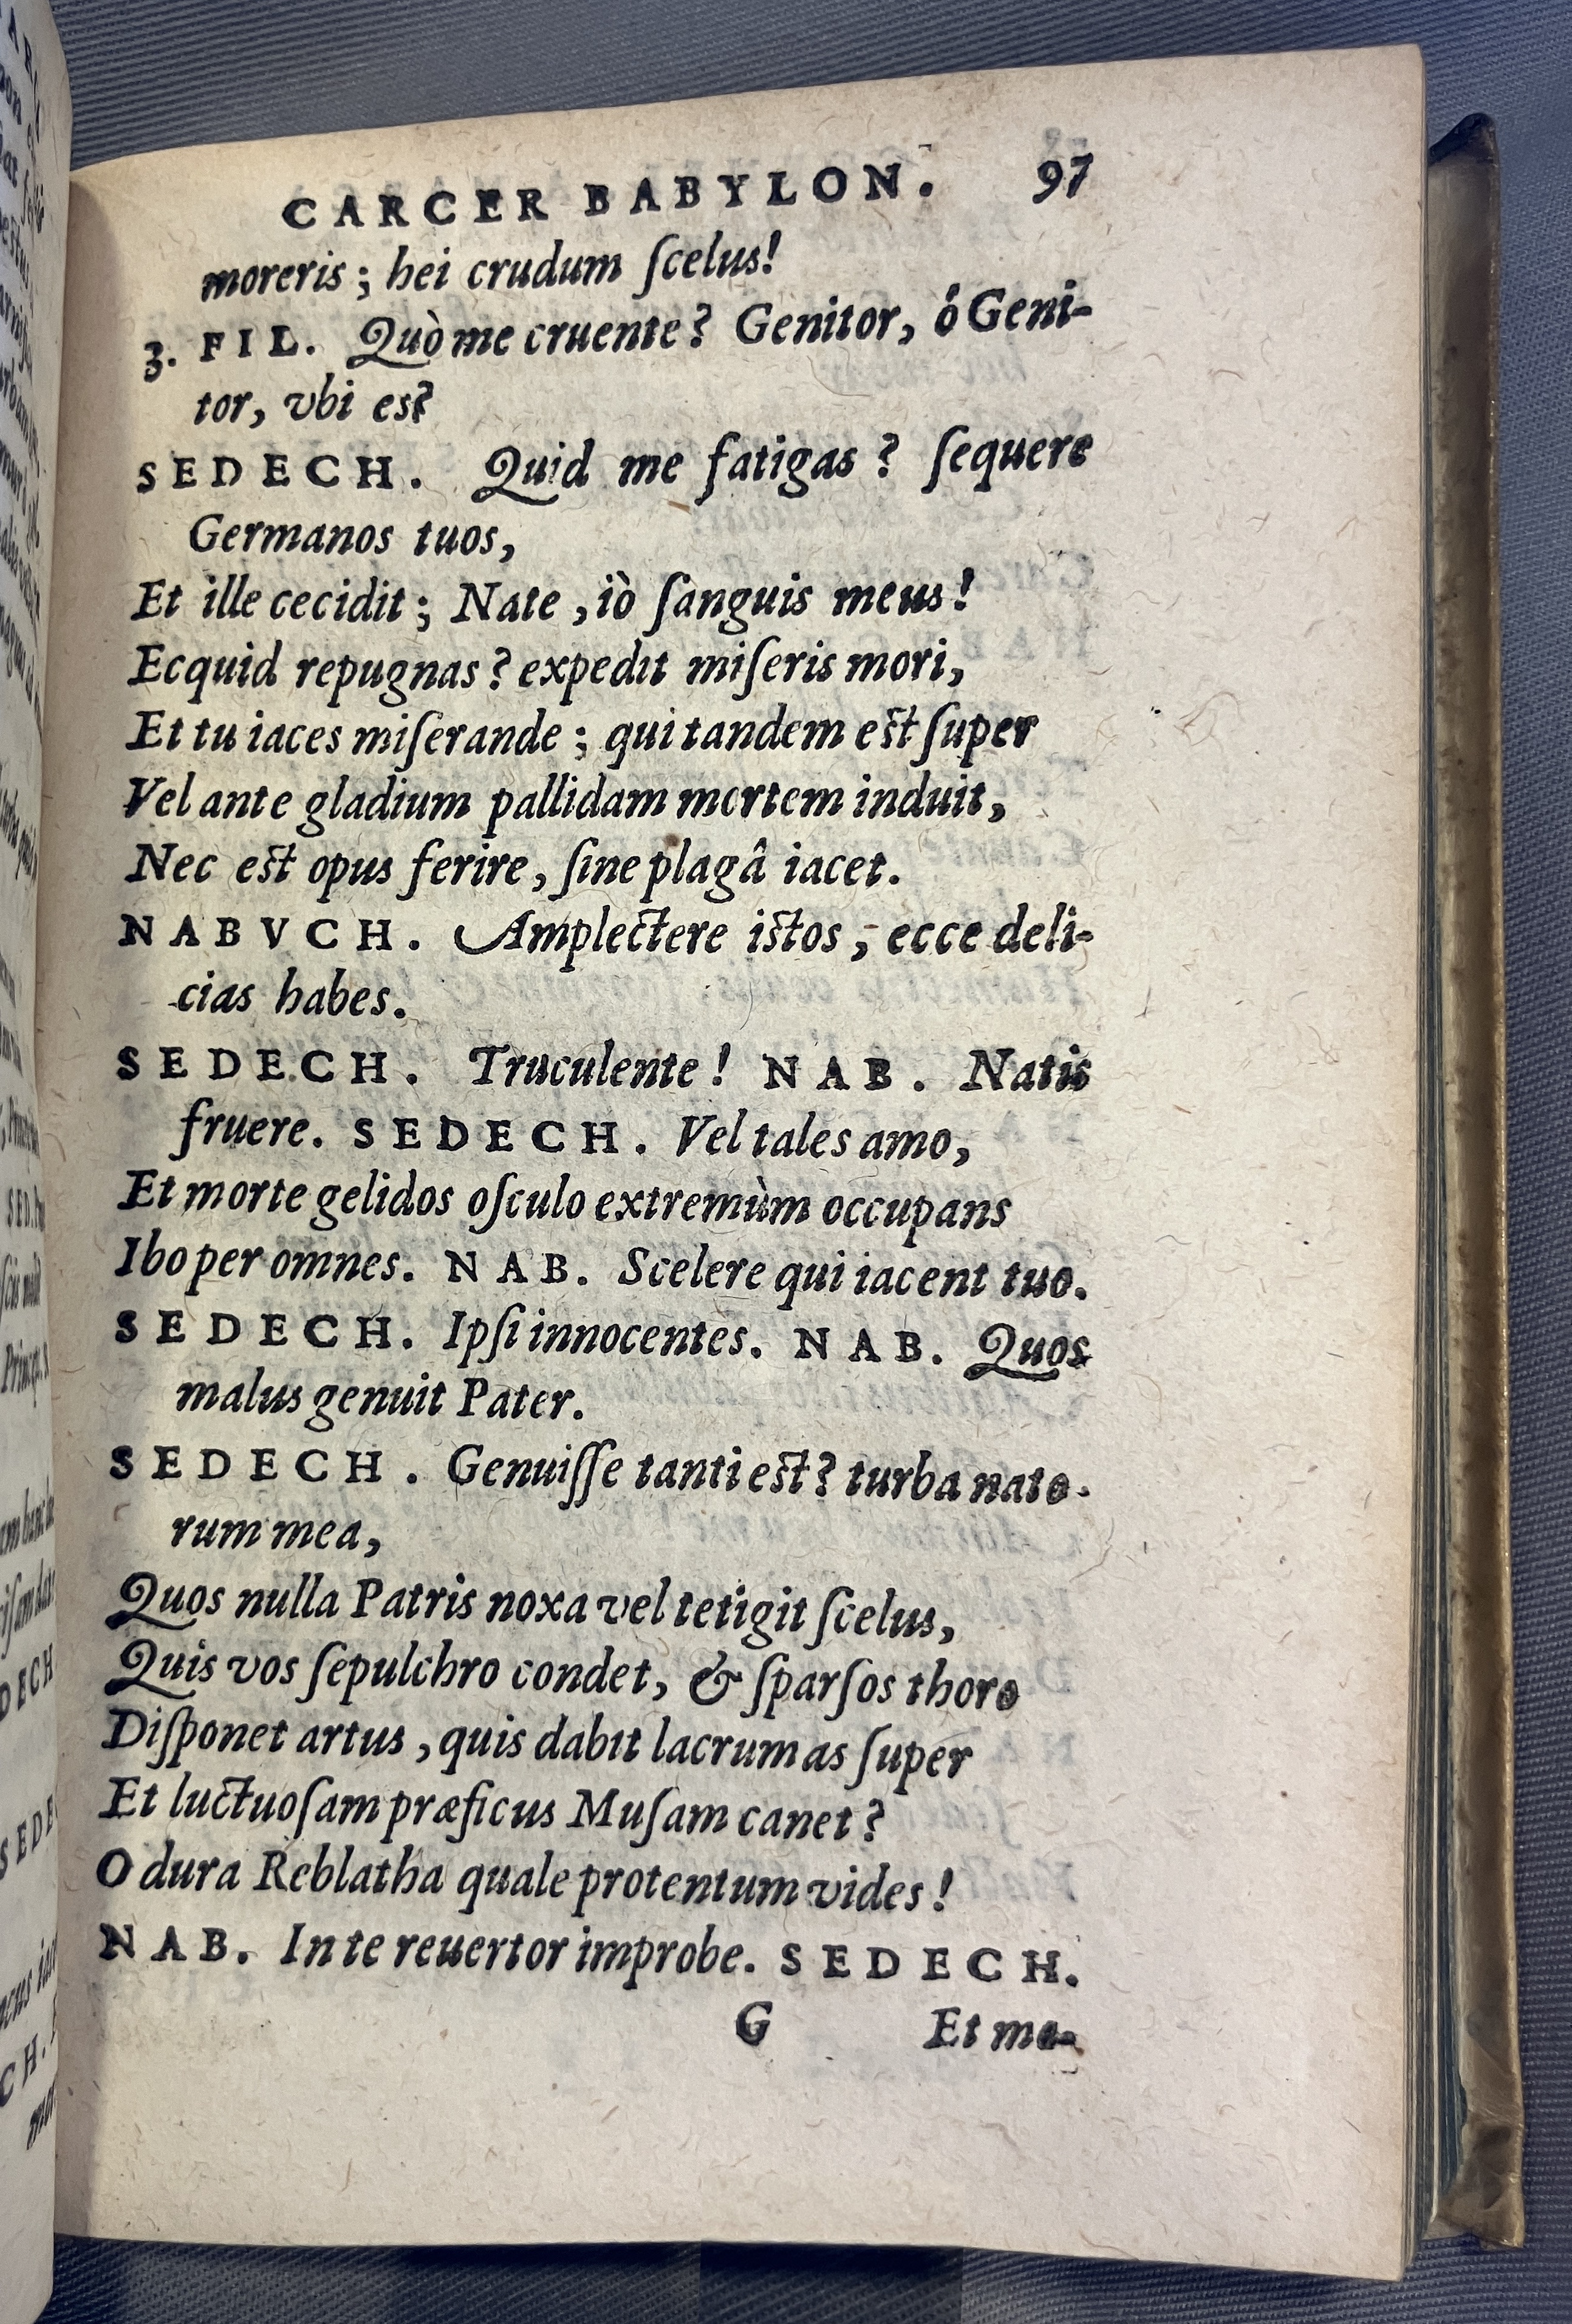 CARCER BABYLON. 97
moreris; hei crudum ſcelus!
3. FIL. Quò me cruente? Genitor, ó Geni-
tor, vbi es?
SEDECH. Quid me fatigas? ſequere
Germanos tuos,
Et ille cecidit; Nate, iò ſanguis meus!
Ecquid repugnas? expedit miſeris mori,
Et tu iaces miſerande; qui tandem eſt ſuper
Vel ante gladium pallidam mortem induit,
Nec eſt opus ferire, ſine plagâ iacet.
NABVCH. Amplectere iſtos, ecce deli-
cias habes.
SEDECH. Truculente! NAB. Natis
fruere. SEDECH. Vel tales amo,
Et morte gelidos oſculo extremùm occupans
Ibo per omnes. NAB. Scelere qui iacent tuo.
SEDECH. Ipſi innocentes. NAB. Quos
malus genuit Pater.
SEDECH. Genuiſſe tanti eſt? turba nato-
rum mea,
Quos nulla Patris noxa vel tetigit ſcelus,
Quis vos ſepulchro condet, & ſparſos thoro
Diſponet artus, quis dabit lacrumas ſuper
Et luctuoſam præficus Muſam canet?
O dura Reblatha quale protentum vides!
NAB. In te reuertor improbe. SEDECH.
G Et me-